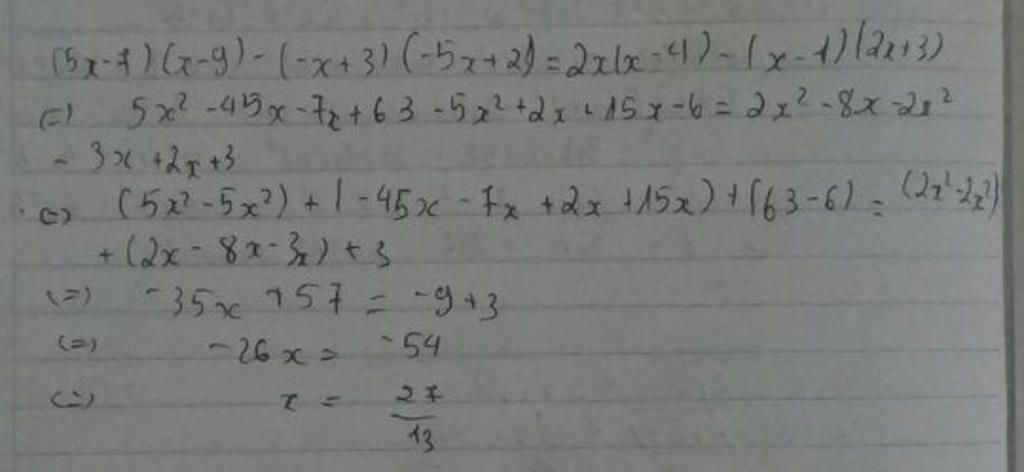 (5x-7)(x-9)-(-x+3)(-5x+2)=2x(x-4)-(x-1)(2x+3)
(=) 5x² -45x -7x +63 -5x² +2x +15x -6 = 2x² -8x -2x²
- 3x +2x +3
(=) (5x² -5x²) + (-45x -7x +2x +15x) + (63-6) = (2x² -2x²)
+ (2x - 8x - 3x) + 3
(=) -35x +57 = -9+3
(=) -26x = -54
(=) x = 27/13